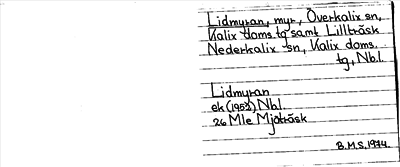 Lidmyran, myr, Överkalix sn,
Kalix doms. tg samt Lillträsk
Nederkalix sn, Kalix doms.
tg, Nbl.
Lidmyran
ek (1953) Nbl.
26 Mle Mjöträsk
B.M.S. 1974.